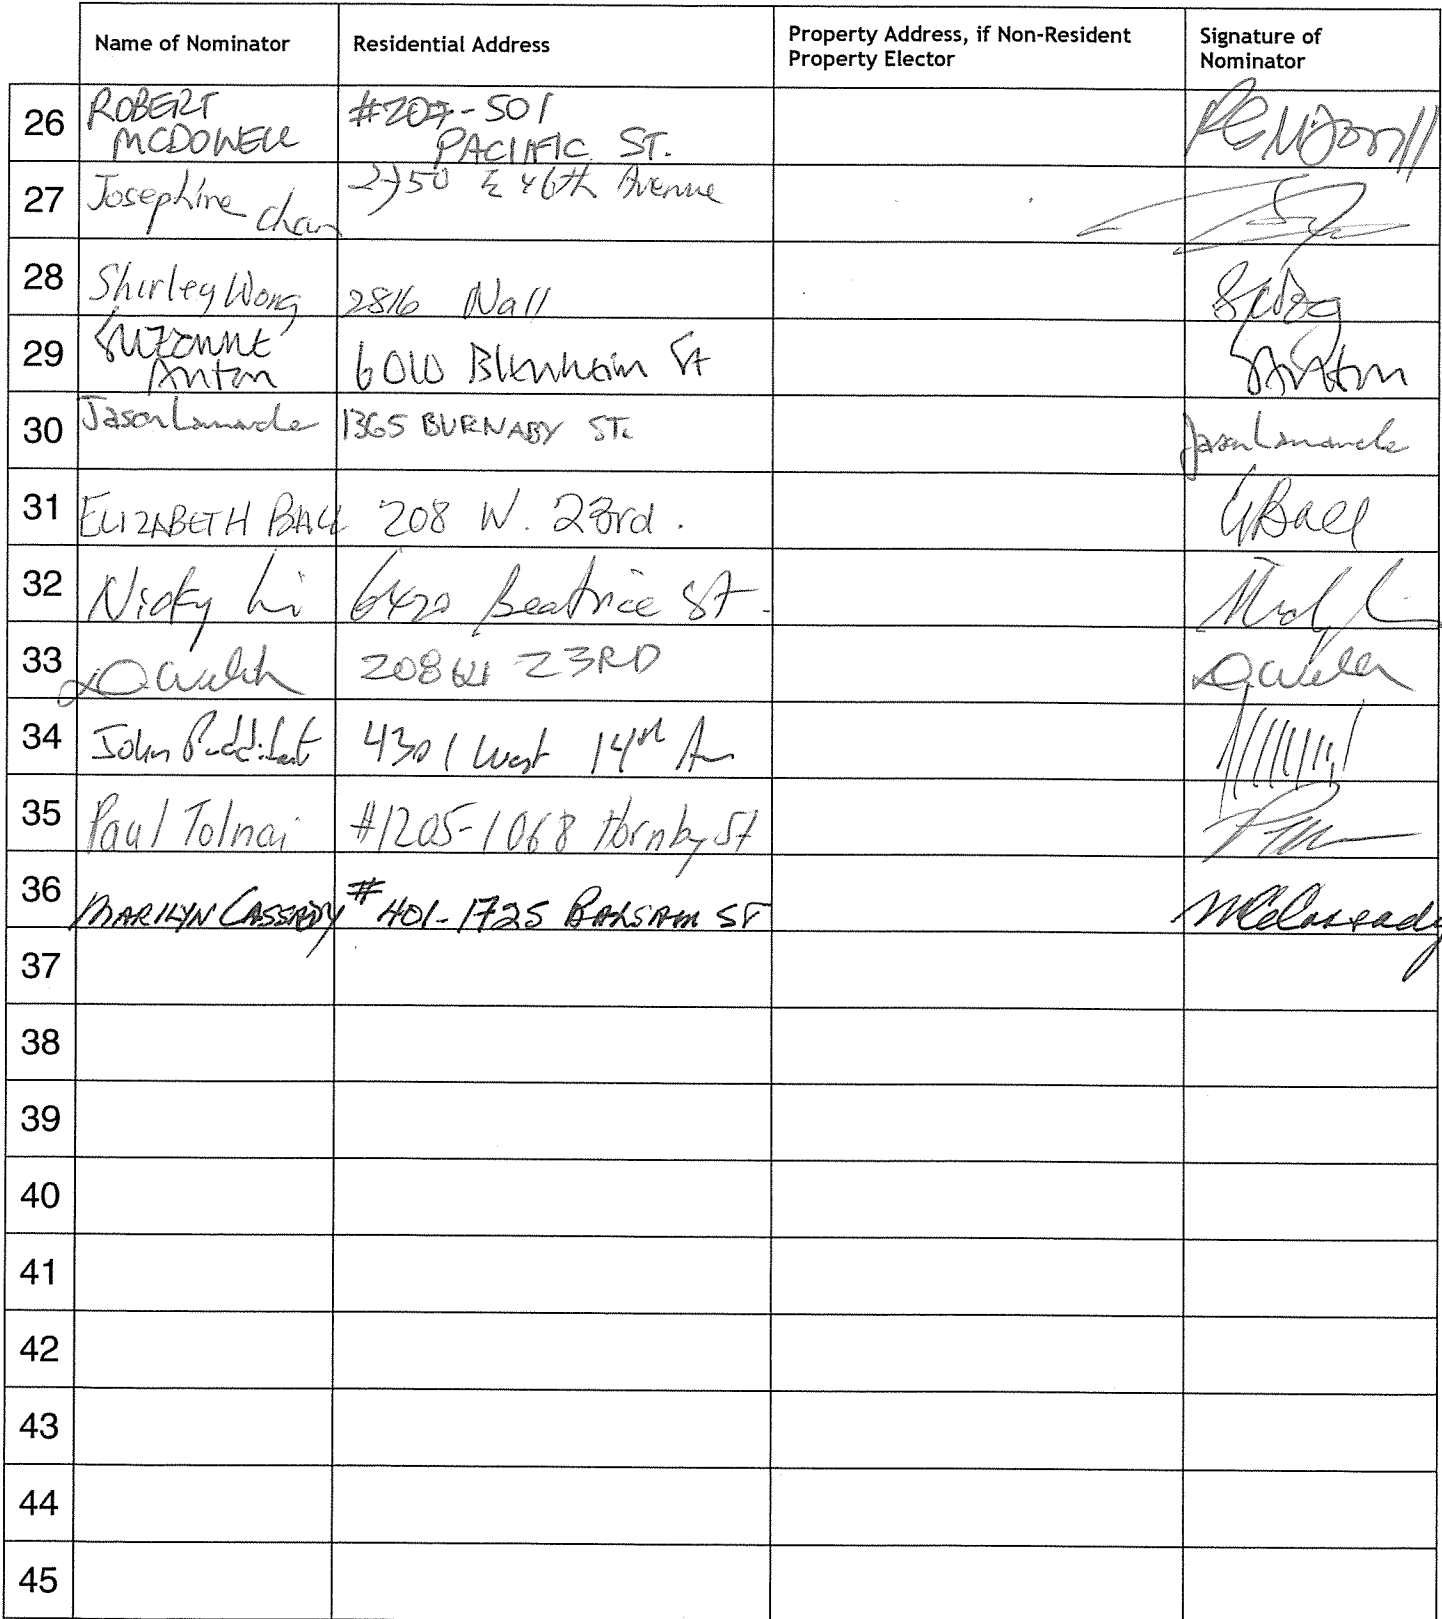 Name of Nominator Residential Address Property Address, if Non-Resident Signature of
Property Elector Nominator
26 ROBERT #207-501
MCDOWELL PACIFIC ST.
27 Josephine Chan 2750 E 46th Avenue
28 Shirley Wong 2816 Wall
29 Suzanne 6010 Blenheim St
Anton
30 Jason Lamarche 1365 BURNABY ST. Jason Lamarche
31 ELIZABETH BALL 208 W. 23rd. EBall
32 Nicky Li 6420 Beatrice St.
33 208 W 23RD
34 John 4301 West 14th Av
35 Paul Tolnai #1205-1068 Hornby St
36 MARILYN CASSADY #401-1725 BALSAM ST MCassady
37
38
39
40
41
42
43
44
45